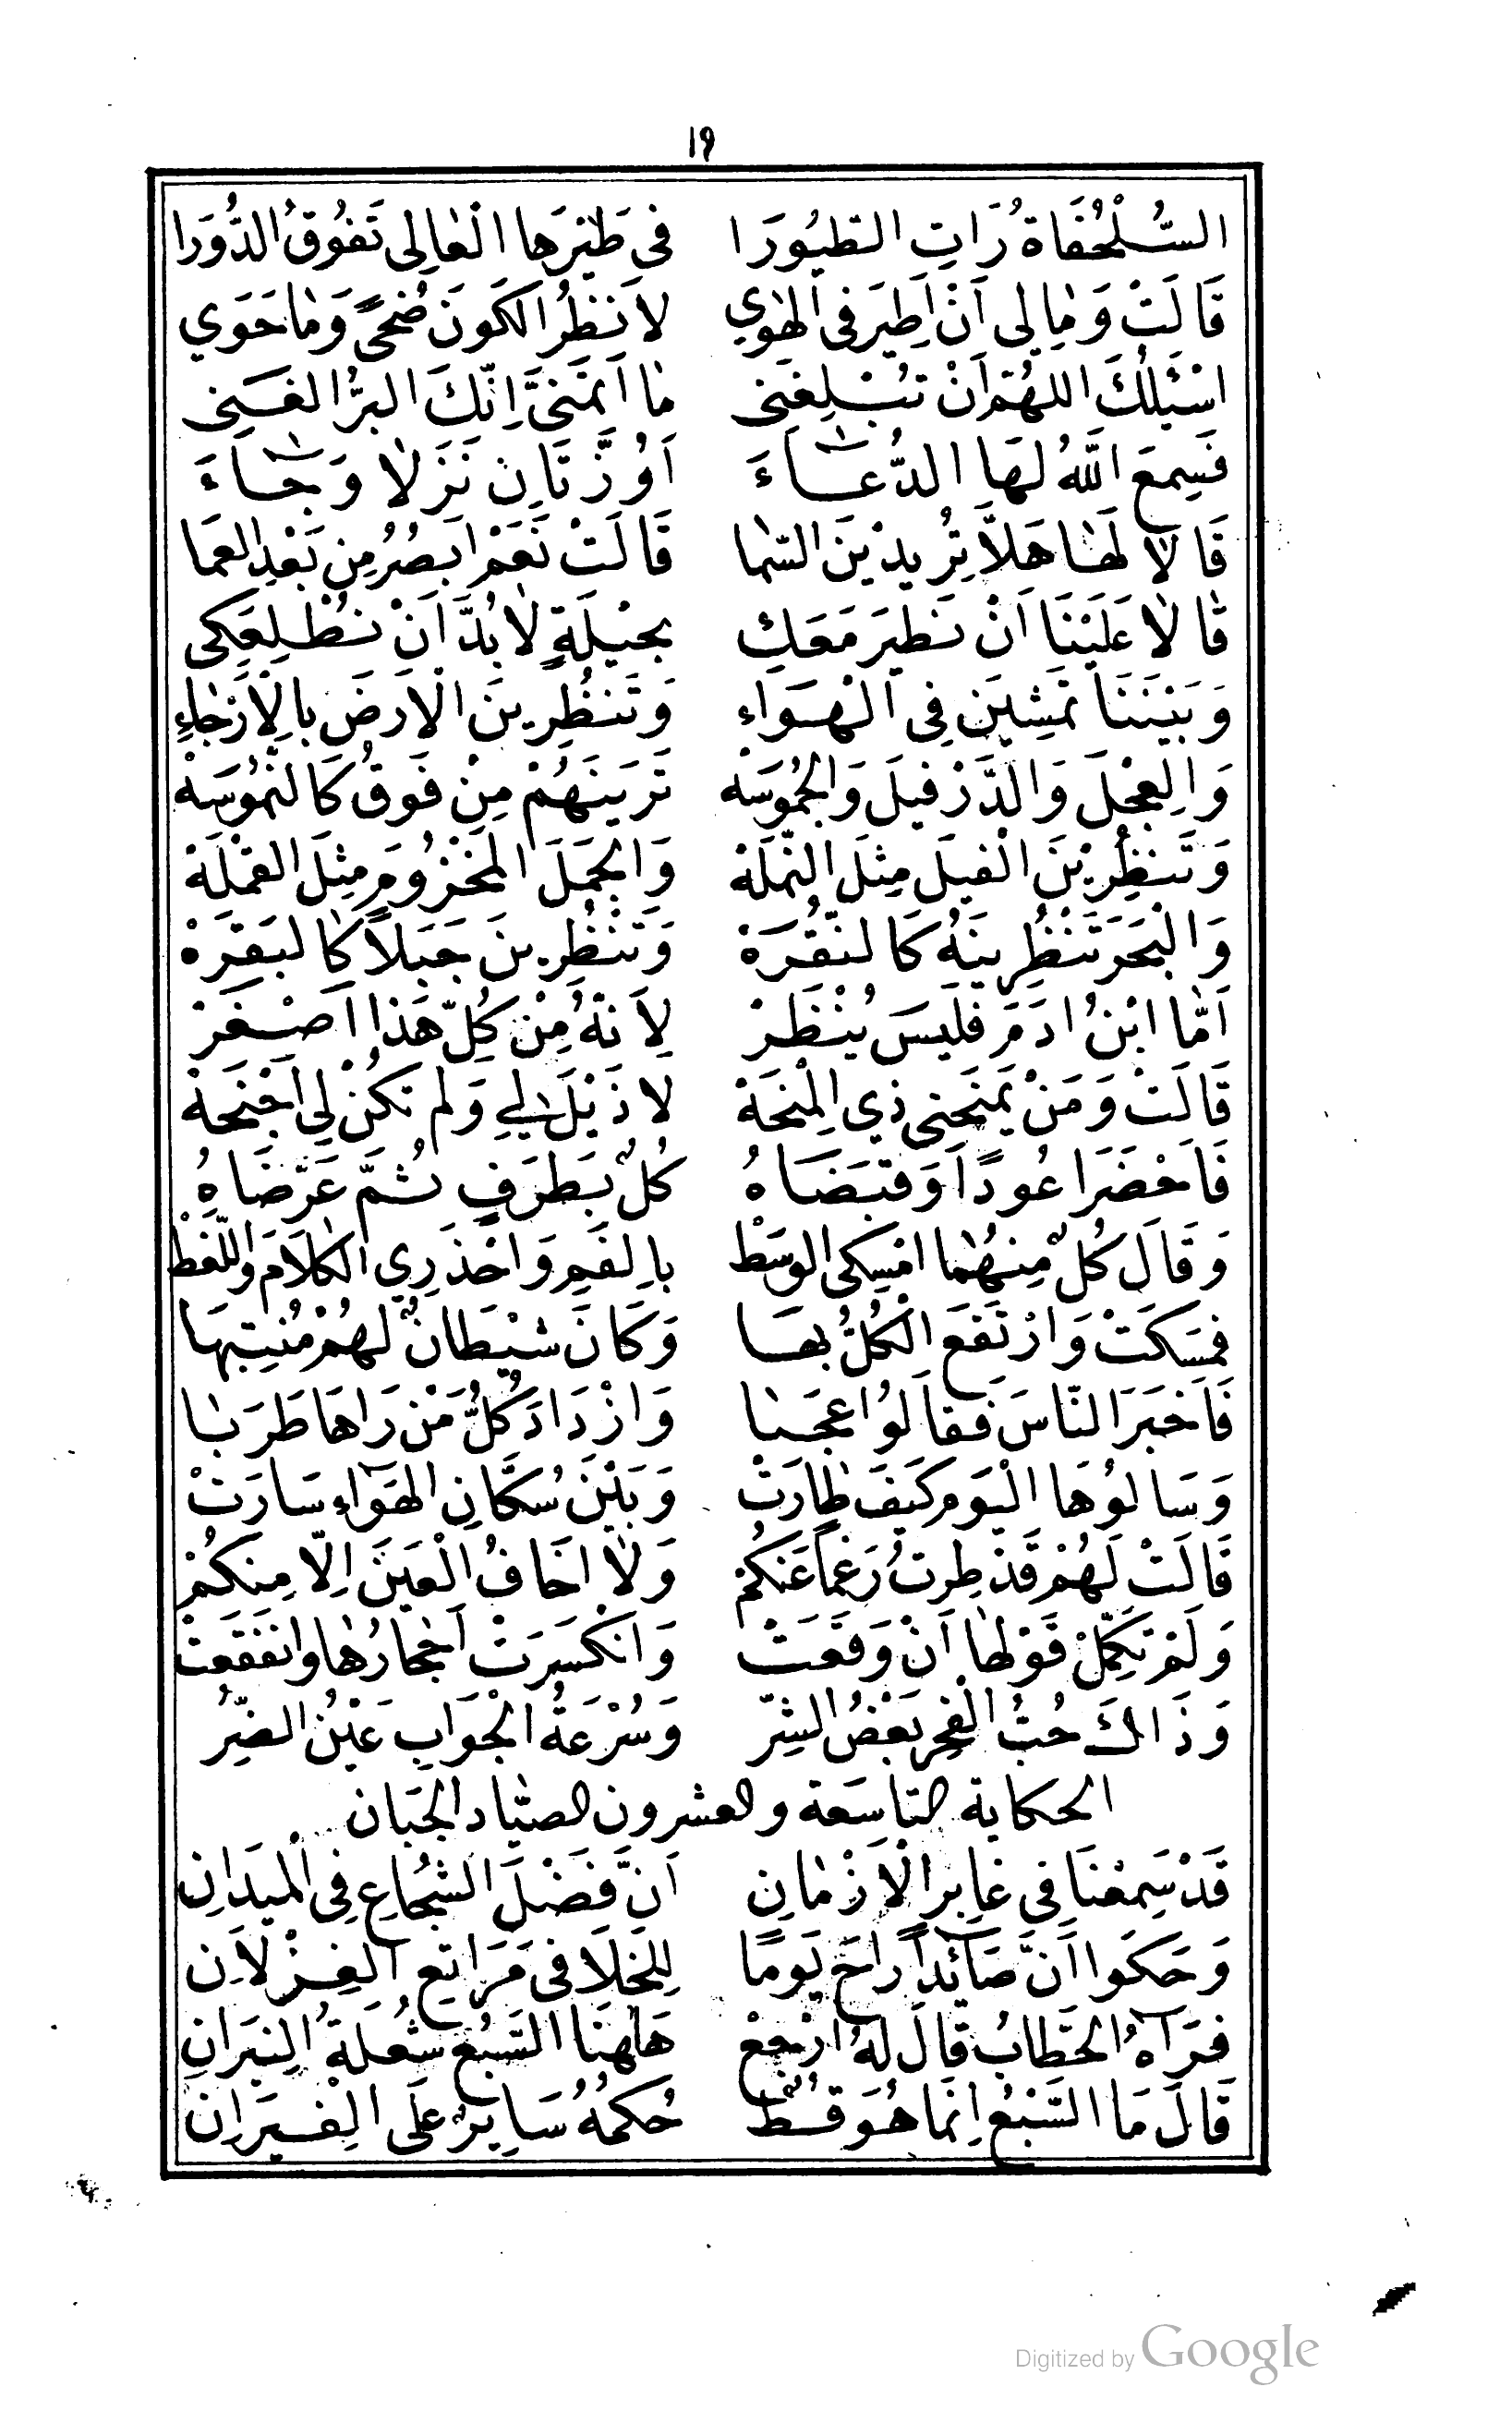 ١٩
السُّلْحُفَاةُ رَاتِ الطيُورَا في طَيْرِهَا الْعَالِي تَفُوقُ الدُّورَا
قَالَتْ وَمَالِي اَنْ اَطِيرَ فِى الهَوٰي لاَنْظُرُ الكَونَ ضُحىً وَمَا حَوَي
اسْئَلُكَ اللهُمَّ اَنْ تُبْلِغَنِى مَا اَتَمَنَّى اِنَّكَ البَرُّ الغَنِى
فَسِمعَ اللّٰهُ لهَا الدُّعَاءَ اَوُزَّتَانِ نَزَلاٰ وَجَاءَ
قَالاٰ لهَا هَلاَّ تُرِيدْينَ السَّما قَالَتْ نَعَمْ ابَصُرُ مِن بَعْدِ العَمَا
قَالاٰ عَلَيْنَا اَنْ نَطيرَ مَعَكِ بِحيْلَةٍ لاٰبُدَّ اَنْ نُطْلِعَكِى
وَبَيْنَنَا تَمشِينَ فِى الْهَوَاءِ وَتَنظُرِينَ الْاَرضَ بِالْاَرْجَاءِ
وَالِعجْلَ وَالدَّرْفيلَ وَالجُمُوسَهْ تَرَينَهُمْ مِنْ فَوقُ كَالنُّمُوسَهْ
وَتَنظِرُيْنَ الْفيلَ مِثلَ النَّملَهْ وَالجَمَلَ المَخْزُومَ مِثلَ القَمْلَهْ
وَالْبَحَرَ تَنْظُرِينَهُ كَالنُّقُرَهْ وَتَنْظُرِينَ جَبَلاً كَالبَقَرَهْ
اَمَّا ابْنُ ادَمَ فلَيسَ يُنْظَرْ لِاَنهُ مِنْ كُلِّ هَذا اَصْغَرْ
قَالَتْ وَمَنْ يَمنَحنِى ذي الِمْنحَهْ لا ذَيْلَ لي وَلم تكُنْ لِى اَجْنِحَهْ
فَاَحْضَرَا عُودًا وَقبَضَاهُ كُلٌ بطَرَفٍ ثُمَّ عَرَّضَاهُ
وَقَالَ كُلٌ مِنهُمَا امْسِكى الوسَطْ بِالفَمِ وَاحْذَرِي الكَلاَمَ وَاللَّغَطْ
فمَسَكَتْ وَارْتَفَعَ الْكُلُّ بهَا وَكَانَ شَيْطَانٌ لهُمْ مُنْتِبهَا
فَاَخبَرَ النَّاسَ فقَالوُا عجَبَا وَازْدَادَ كُلُّ مَنْ رَاهَا طَرَبَا
وَسَالوُهَا اليَوم كَيفَ طَارَتْ وَبَيْنَ سُكَّانِ الهَوَاءِ سَارَتْ
قَالَتْ لَهُمْ قَدْ طِرتُ رَغماً عَنكُمْ وَلاٰ اخَافُ الْعَينَ اِلّا مِنكُمْ
وَلَمْ تكَمِّلْ قَوْلهَا اَنْ وَقَعَتْ وَانْكَسَرَتْ اَحجَارُهَا وانفَقَعَتْ
وَذَاكَ حُبُّ الْفخِر بَعْضُ الشِّر وَسُرْعَةُ الْجَوَابِ عَيْنُ الضِّرُ
الحكاية التاسَعة والعشرون الصيَّاد الجَبَان
قَدْ سَمِعْنَا فِى غَابِرِ الْاَزْمَانِ اَنَّ فَضْلَ الشُّجَاعِ فِى الْميدَانِ
وَحَكَوا اَنَّ صَائدًا رَاحَ يَومًا لِلخَلَا فى مَرَاتعِ الغِزْلاَنِ
فرَآهُ الحَطَّابُ قَالَ لهُ ارْجعْ هَاهنَا السَّبعُ شُعلَةُ النِيرَانِ
قَالَ مَا السَّبْعُ اِنمَا هُوَ قُطٌ حُكمُهُ سَايرٌ عَلَى الْفيرَانِ
Digitized by Google